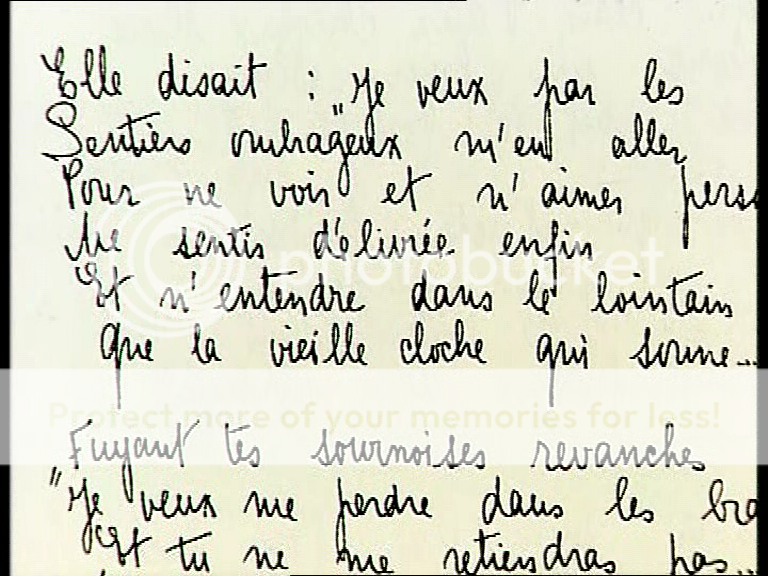 Elle disait : "Je veux par les
Sentiers ombrageux m'en aller
Pour ne voir et n'aimer pers
Me sentir délivrée enfin
photobucket
Et n'entendre dans le lointain
Que la vieille cloche qui sonne...
Protect more of your memories for less!
Fuyant tes sournoises revanches
"Je veux me perdre dans les bra
Et tu ne me retiendras pas...